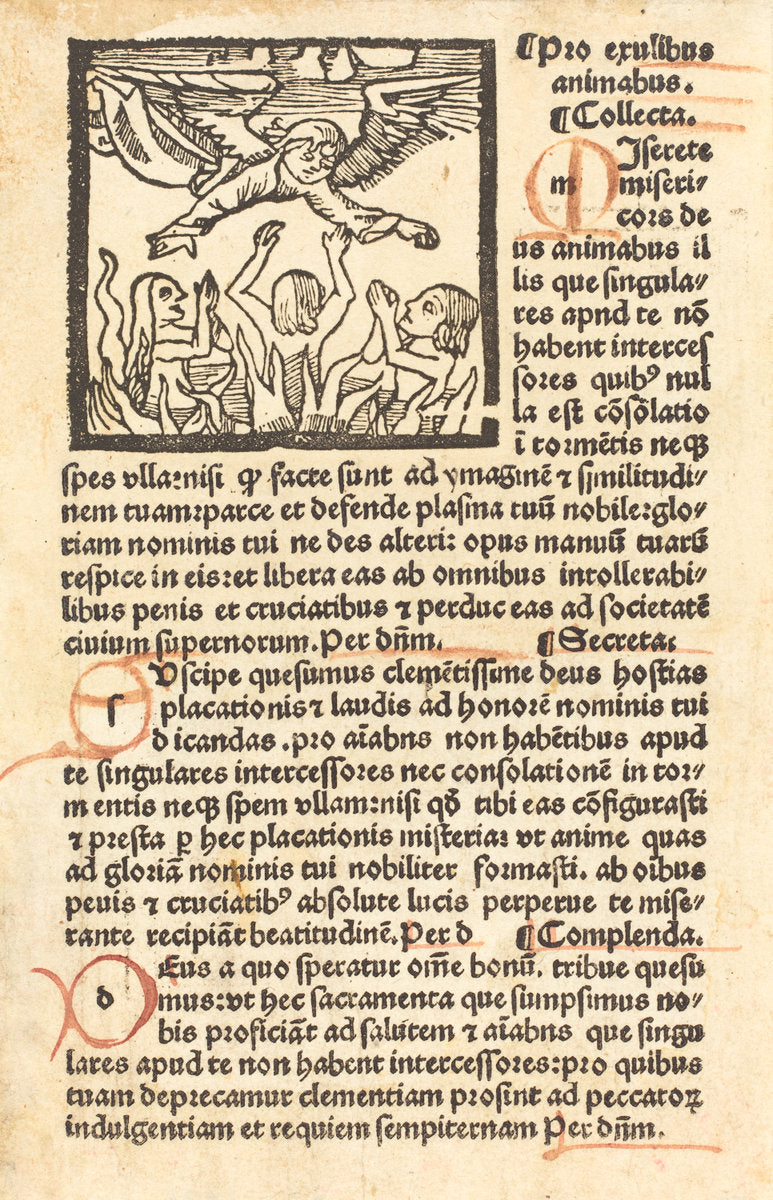 ¶Pro exulibus
animabus.
¶Collecta.
M Jserete
m miseri⸗
cors de
us animabus il
lis que singula⸗
res apnd te nō
habent interces
sores quibꝰ nul
la est cōsōlatio
ī tormētis neqꝫ
spes vlla:nisi ꝙ facte sunt ad ymaginē ⁊ similitudi⸗
nem tuam:parce et defende plasma tuū nobile:glo⸗
riam nominis tui ne des alteri: opus manuū tuarū
respice in eis:et libera eas ab omnibus intollerabi⸗
libus penis et cruciatibus ⁊ perduc eas ad societatē
ciuium supernorum.Per dn̄m. ¶Secreta:
S s Vscipe quesumus clemētissime deus hostias
placationis⁊ laudis ad honorē nominis tui
dicandas .pro aīabns non habētibus apud
te singulares intercessores nec consolationē in tor⸗
mentis neqꝫ spem vllam:nisi qď tibi eas cōfigurasti
⁊ presta ꝑ hec placationis misteria: vt anime quas
ad gloriā nominis tui nobiliter formasti. ab oībus
peuis ⁊ cruciatibꝰ absolute lucis perperue te mise⸗
rante recipiāt beatitudinē.Per d ¶Complenda.
D d Eus a quo speratur om̄e bonū. tribue quesu
mus:vt hec sacramenta que sumpsimus no⸗
bis proficiāt ad salutem ⁊ aīabns que singu
lares apud te non habent intercessores:pro quibus
tuam deprecamur clementiam prosint ad peccatoꝝ
indulgentiam et requiem sempiternam Per dn̄m.